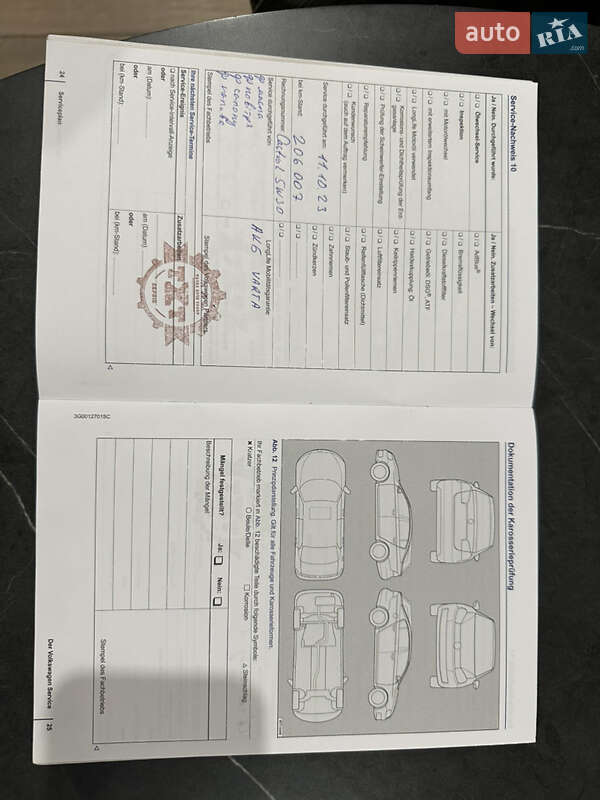 auto RIA.com
Service-Nachweis 10
Ja / Nein, Durchgeführt wurde:
❑ / ❑ Ölwechsel-Service
❑ / ❑ Inspektion
❑ / ❑ mit Motorölwechsel
❑ / ❑ mit erweitertem Inspektionsumfang
❑ / ❑ LongLife Motoröl verwendet
❑ / ❑ Korrosions- und Dichtheitsprüfung der Erd-
gasanlage
❑ / ❑ Prüfung der Scheinwerfer-Einstellung
❑ / ❑ Reparaturempfehlung
❑ / ❑ Kundenwunsch
(auch auf dem Auftrag vermerken)
Service durchgeführt am: 11.10.23
bei km-Stand: 206 007
Rechnungsnummer: Castrol 5W30
Service durchgeführt von:
Stempel des Fachbetriebs
Ja / Nein, Zusatzarbeiten – Wechsel von:
❑ / ❑ AdBlue®
❑ / ❑ Bremsflüssigkeit
❑ / ❑ Dieselkraftstofffilter
❑ / ❑ Getriebeöl: DSG®, ATF
❑ / ❑ Haldexkupplung: Öl
❑ / ❑ Keilrippenriemen
❑ / ❑ Luftfiltereinsatz
❑ / ❑ Reifenfülltasche (Dichtmittel)
❑ / ❑ Staub- und Pollenfiltereinsatz
❑ / ❑ Zahnriemen
❑ / ❑ Zündkerzen
❑ / ❑
❑ / ❑
LongLife Mobilitätsgarantie
АКБ VARTA
Stempel des Volkswagen Partners
Ihre nächsten Service-Termine
Service-Ereignis
❑ nach Service-Intervall-Anzeige
oder
am (Datum):
oder
bei (km-Stand):
Zusatzarbeiten
am (Datum):
oder
bei (km-Stand):
24 Serviceplan
Dokumentation der Karosserieprüfung
Abb. 12 Prinzipdarstellung. Gilt für alle Fahrzeuge und Karosserieformen.
Ihr Fachbetrieb markiert in Abb. 12 beschädigte Teile durch folgende Symbole:
✖ Kratzer ○ Beule/Delle □ Korrosion △ Steinschlag
Mängel festgestellt? Ja: ❑ Nein: ❑
Beschreibung der Mängel
Stempel des Fachbetriebs
3G0012701SC
Der Volkswagen Service 25